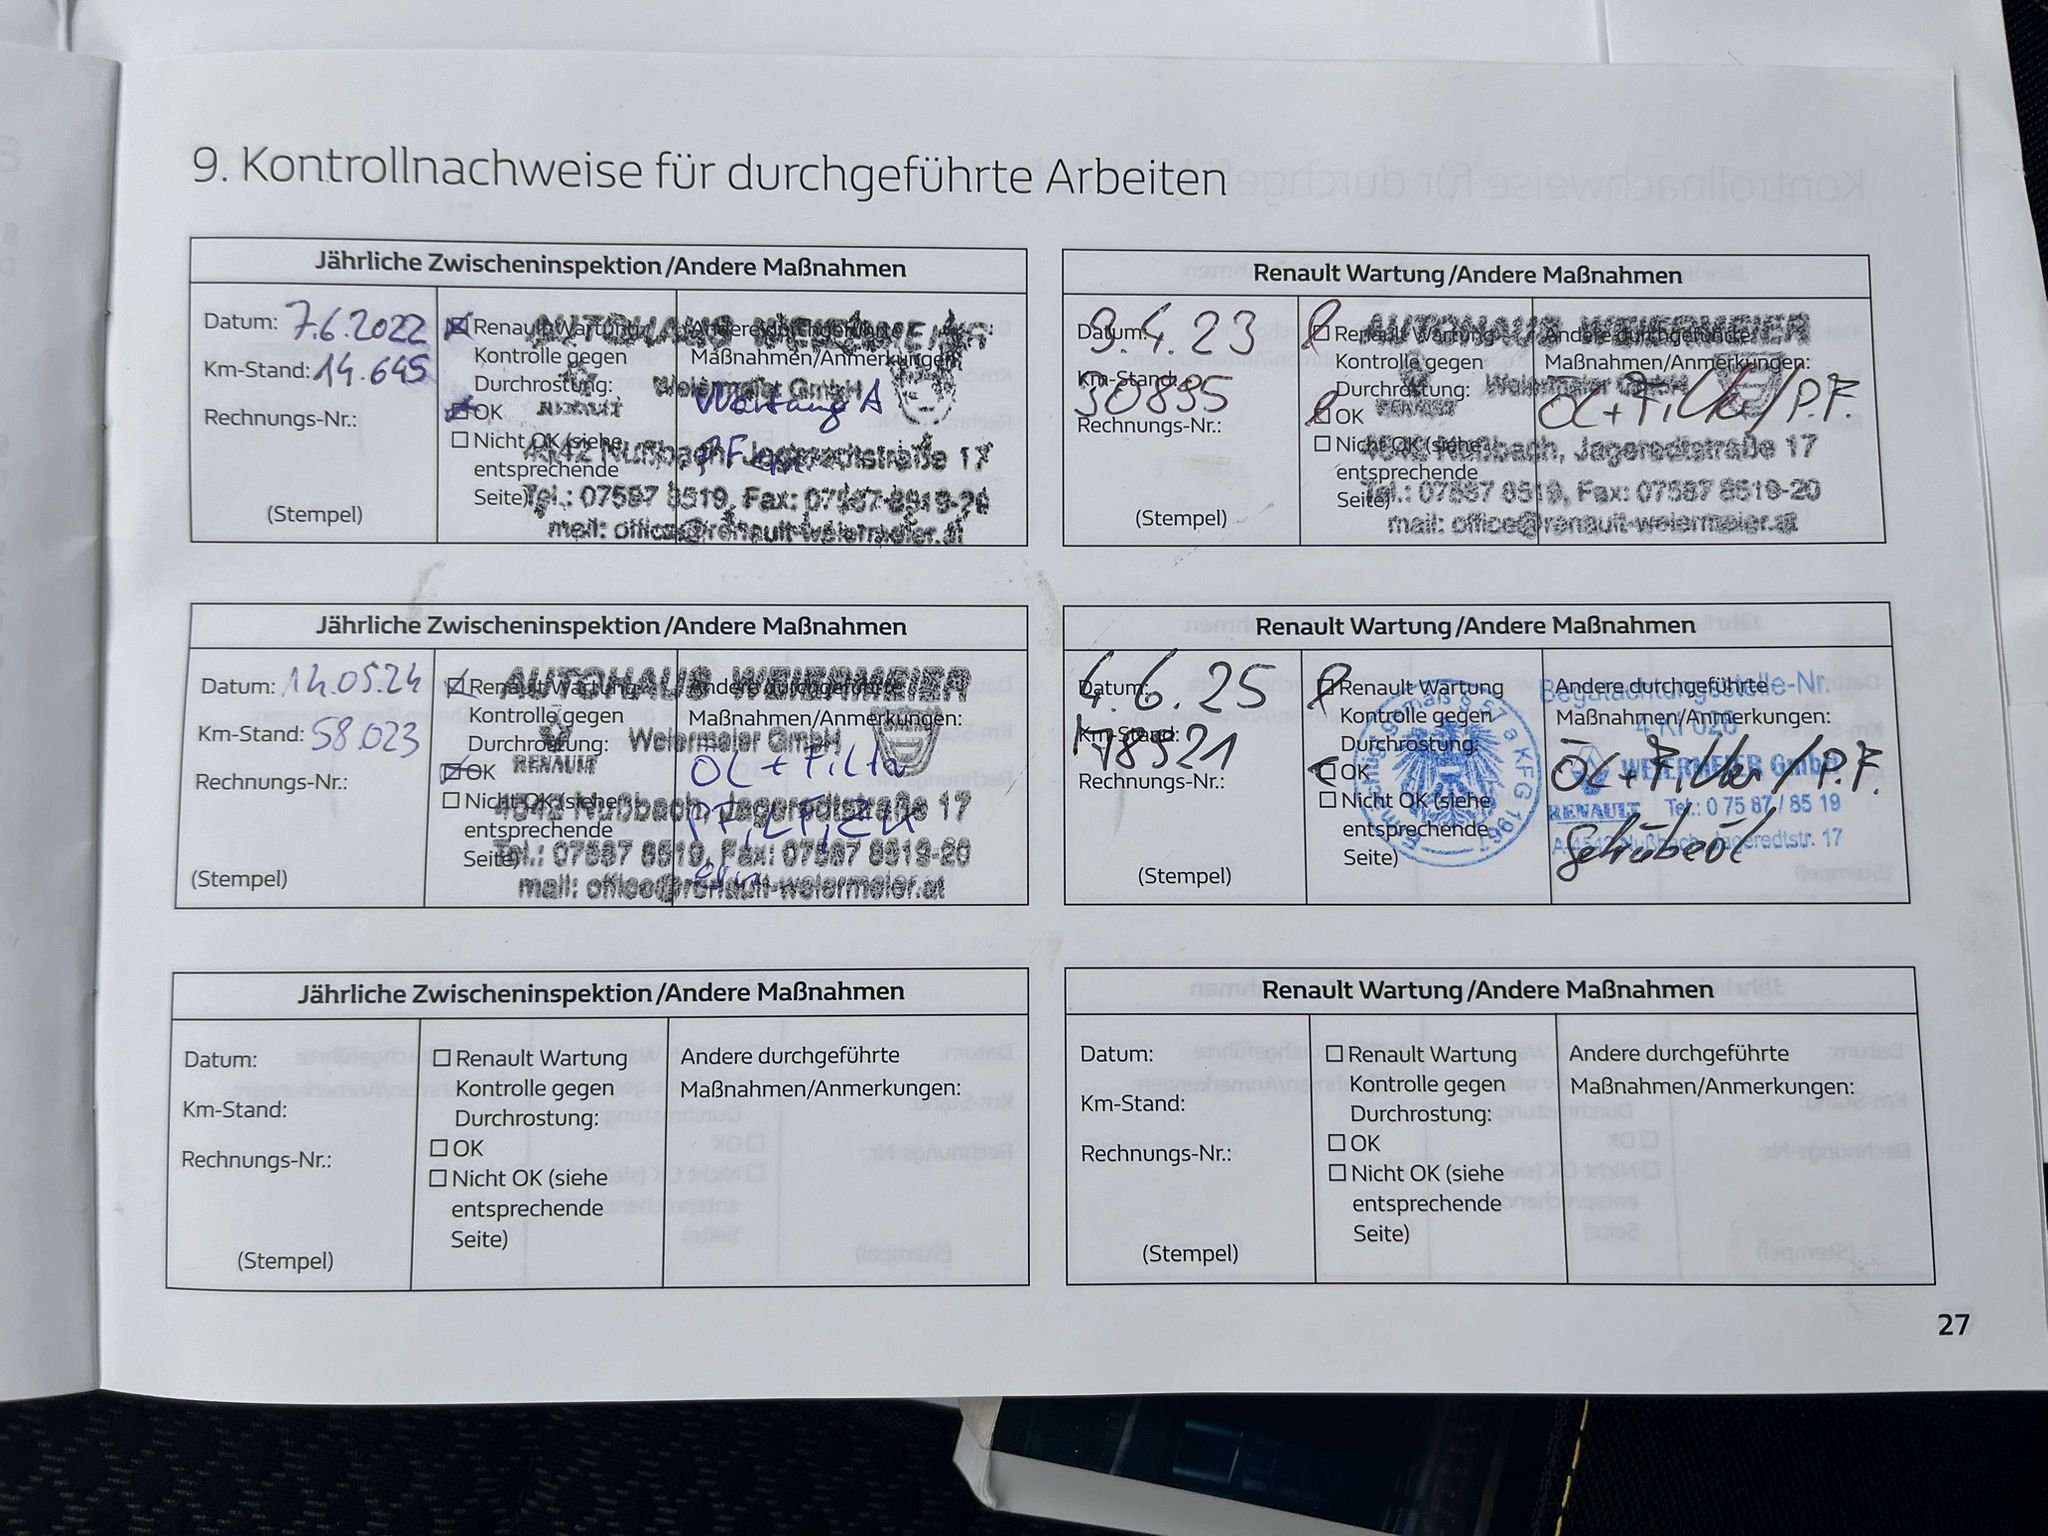 9. Kontrollnachweise für durchgeführte Arbeiten
Jährliche Zwischeninspektion/Andere Maßnahmen
Datum: 7.6.2022
Km-Stand: 14.645
Rechnungs-Nr.:
(Stempel)
Renault Wartung
Kontrolle gegen
Durchrostung:
OK
Nicht OK (siehe
entsprechende
Seite)
Andere durchgeführte
Maßnahmen/Anmerkungen:
Wartung A
AUTOHAUS WEIERMEIER
Weiermeier GmbH
RENAULT
4542 Nußbach, Jageredtstraße 17
Tel.: 07587 8519, Fax: 07587-8519-20
mail: office@renault-weiermeier.at
Renault Wartung/Andere Maßnahmen
Datum: 9.4.23
Km-Stand: 30895
Rechnungs-Nr.:
(Stempel)
Renault Wartung
Kontrolle gegen
Durchrostung:
OK
Nicht OK (siehe
entsprechende
Seite)
Andere durchgeführte
Maßnahmen/Anmerkungen:
Öl + Filter / P.F.
AUTOHAUS WEIERMEIER
Weiermeier GmbH
RENAULT
4542 Nußbach, Jageredtstraße 17
Tel.: 07587 8519, Fax: 07587 8519-20
mail: office@renault-weiermeier.at
Jährliche Zwischeninspektion/Andere Maßnahmen
Datum: 14.05.24
Km-Stand: 58.023
Rechnungs-Nr.:
(Stempel)
Renault Wartung
Kontrolle gegen
Durchrostung:
OK
Nicht OK (siehe
entsprechende
Seite)
Andere durchgeführte
Maßnahmen/Anmerkungen:
Öl + Filter
AUTOHAUS WEIERMEIER
Weiermeier GmbH
RENAULT
4542 Nußbach, Jageredtstraße 17
Tel.: 07587 8519, Fax: 07587 8519-20
mail: office@renault-weiermeier.at
Renault Wartung/Andere Maßnahmen
Datum: 4.6.25
Km-Stand: 78921
Rechnungs-Nr.:
(Stempel)
Renault Wartung
Kontrolle gegen
Durchrostung:
OK
Nicht OK (siehe
entsprechende
Seite)
Andere durchgeführte
Maßnahmen/Anmerkungen:
Öl + Filter / P.F.
Getriebeöl
Ermächtigt gemäß § 57 a KFG 1967
Begutachtungsstelle-Nr.
WEIERMEIER GmbH
RENAULT Tel.: 0 75 87 / 85 19
A-4542 Nußbach, Jageredtstr. 17
Jährliche Zwischeninspektion/Andere Maßnahmen
Datum:
Km-Stand:
Rechnungs-Nr.:
(Stempel)
Renault Wartung
Kontrolle gegen
Durchrostung:
OK
Nicht OK (siehe
entsprechende
Seite)
Andere durchgeführte
Maßnahmen/Anmerkungen:
Renault Wartung/Andere Maßnahmen
Datum:
Km-Stand:
Rechnungs-Nr.:
(Stempel)
Renault Wartung
Kontrolle gegen
Durchrostung:
OK
Nicht OK (siehe
entsprechende
Seite)
Andere durchgeführte
Maßnahmen/Anmerkungen:
27